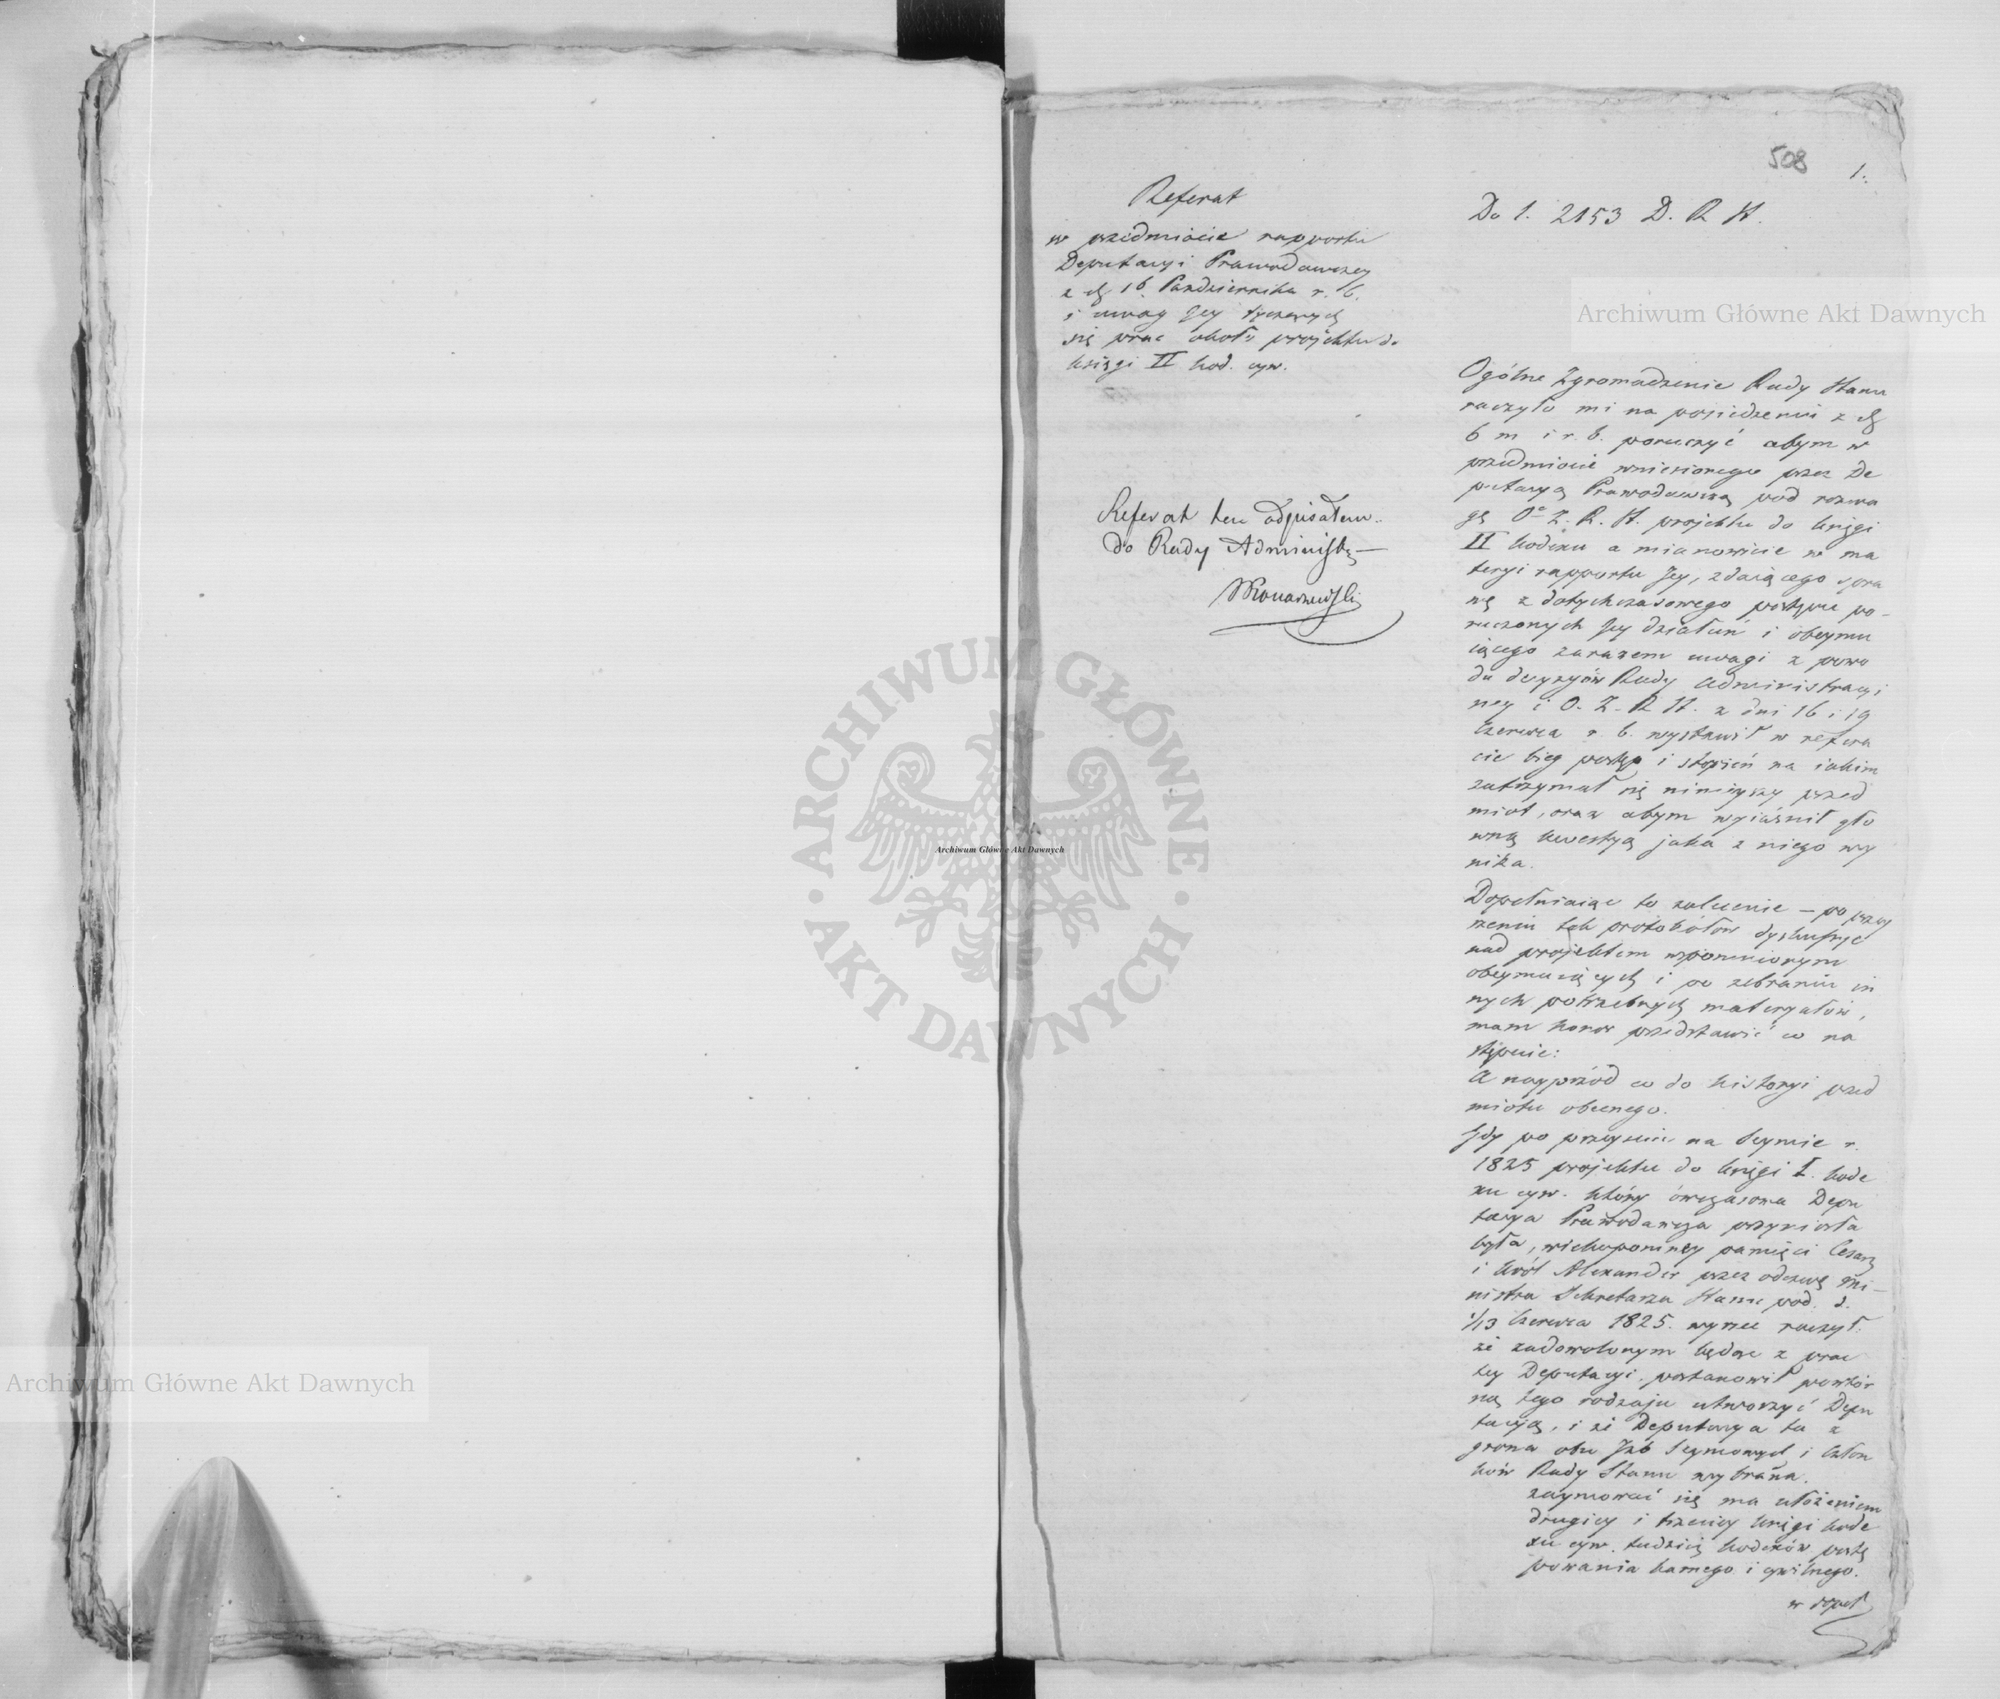 508
1.
Referat
w przedmiocie rapportu
Deputacyi Prawodawczey
z d. 16. Października r. b.
i uwag Jey tyczących
się prac około projektu do
księgi II kod. cyw.
Referat ten odpisałem
do Rady Administr.
Do l. 2153 D. R. St.
Ogólne Zgromadzenie Rady Stanu
raczyło mi na posiedzeniu z d.
6 m. i r. b. poruczyć abym w
przedmiocie wniesionego przez De
putacyą Prawodawczą pod rozwa
gę Oo Z. R. St. projektu do księgi
II kodexu a mianowicie w ma
teryi rapportu Jey, zdaiącego spra
wę z dotychczasowego postępu po-
ruczonych Jey działań i obeymu
iącego zarazem uwagi z powo
du decyzyów Rady Administracyi
ney i O. Z. R. St. z dni 16 i 19
Czerwca r. b. wystawił w refera
cie bieg postęp i stopień na iakim
zatrzymał się ninieyszy przed
miot, oraz abym wyiaśnił głó
wną kwestyą jaka z niego wy
nika.
Dopełniaiąc to zalecenie – po przey
rzeniu tak protokółów dyskussye
nad projektem wspomnionym
obeymuiących i po zebraniu in
nych potrzebnych materyałów,
mam honor przedstawić co na
stępuie:
A nayprzód co do historyi przed
miotu obecnego.
Gdy po przeyściu na Seymie r.
1825 projektu do księgi I. kode
xu cyw. który ówczasowa Depu
tacya Prawodawcza przyniosła
była, wiekopomney pamięci Cesarz
i Król Alexander przez odezwę Mi-
nistra Sekretarza Stanu pod. d.
1/13 Czerwca 1825. wyrzec raczył:
że zadowolonym będąc z prac
tey Deputacyi, postanowił powtór
ną tego rodzaju utworzyć Depu
tacyą, i że Deputacya ta z
grona obu Izb Seymowych i Człon
ków Rady Stanu wybrana.
zaymować się ma ułożeniem
drugiey i trzeciey księgi kode
xu cyw. tudzież kodexów postę
powania karnego i cywilnego.
Archiwum Główne Akt Dawnych
Archiwum Główne Akt Dawnych
Archiwum Główne Akt Dawnych
ARCHIWUM GŁÓWNE
AKT DAWNYCH